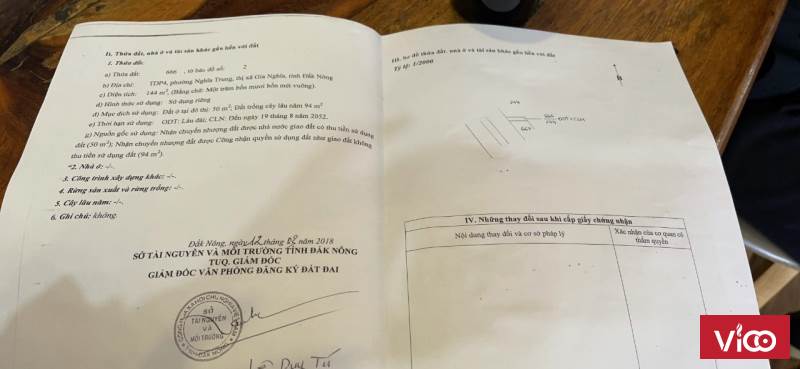 II. Thửa đất, nhà ở và tài sản khác gắn liền với đất
1. Thửa đất:
a) Thửa đất: 666 , tờ bản đồ số: 2
b) Địa chỉ: TDP4, phường Nghĩa Trung, thị xã Gia Nghĩa, tỉnh Đắk Nông
c) Diện tích: 144 m², (Bằng chữ: Một trăm bốn mươi bốn mét vuông).
d) Hình thức sử dụng: Sử dụng riêng
đ) Mục đích sử dụng: Đất ở tại đô thị: 50 m²; Đất trồng cây lâu năm 94 m²
e) Thời hạn sử dụng: ODT: Lâu dài; CLN: Đến ngày 19 tháng 8 năm 2052.
g) Nguồn gốc sử dụng: Nhận chuyển nhượng đất được nhà nước giao đất có thu tiền sử dụng
đất (50 m²); Nhận chuyển nhượng đất được Công nhận quyền sử dụng đất như giao đất không
thu tiền sử dụng đất (94 m²).
2. Nhà ở: -/-.
3. Công trình xây dựng khác: -/-.
4. Rừng sản xuất và rừng trồng: -/-.
5. Cây lâu năm: -/-.
6. Ghi chú: không.
Đắk Nông, ngày 12 tháng 02 năm 2018
SỞ TÀI NGUYÊN VÀ MÔI TRƯỜNG TỈNH ĐẮK NÔNG
TUQ. GIÁM ĐỐC
GIÁM ĐỐC VĂN PHÒNG ĐĂNG KÝ ĐẤT ĐAI
SỞ
TÀI NGUYÊN
VÀ
MÔI TRƯỜNG
Duy Tú
III. Sơ đồ thửa đất, nhà ở và tài sản khác gắn liền với đất
Tỷ lệ: 1/2000
B
666
144
ODT+CLN
667
IV. Những thay đổi sau khi cấp giấy chứng nhận
Nội dung thay đổi và cơ sở pháp lý
Xác nhận của cơ quan có
thẩm quyền
ViCO